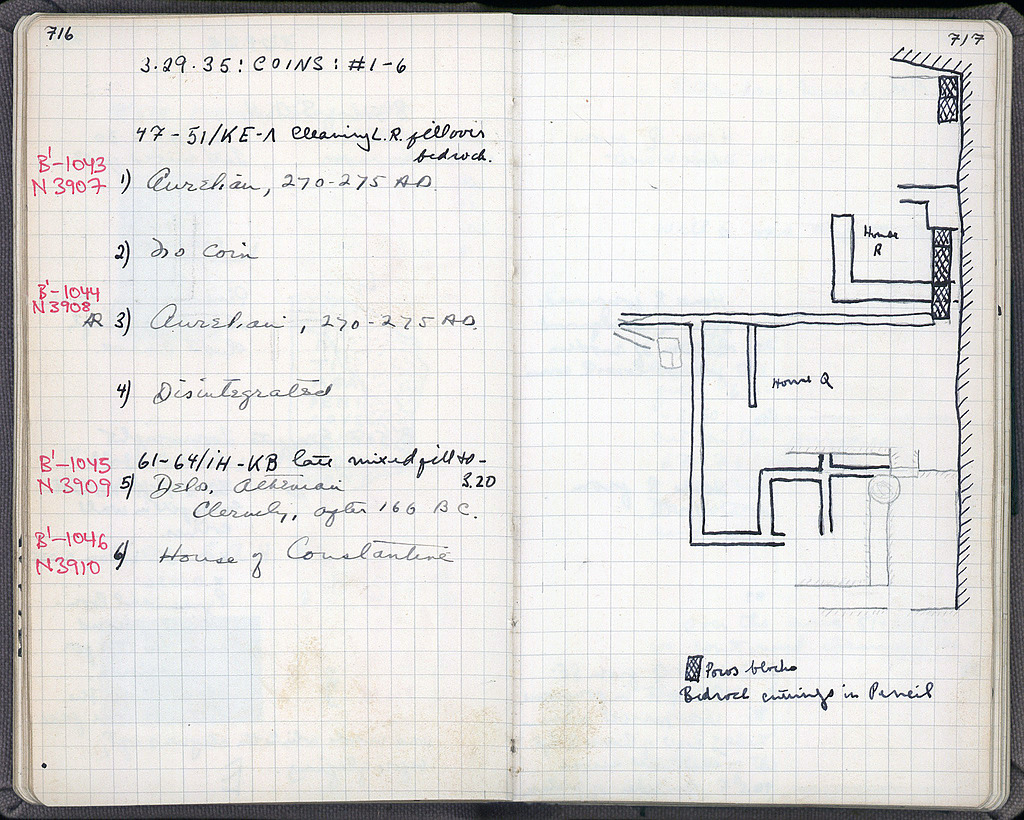 716
3.29.35: COINS: #1-6
47-51/KE-Λ Cleaning L.R. fill over
bedrock.
B'-1043
N 3907 1) Aurelian, 270-275 AD.
2) No coin
B'-1044
N 3908
AR 3) Aurelian, 270-275 AD.
4) Disintegrated
B'-1045 61-64/IH-KB late mixed fill to -
N 3909 5) Delos, Athenian 3.20
Cleruchy, after 166 B.C.
B'-1046
N 3910 6) House of Constantine
717
House
R
House Q
Poros blocks
Bedrock cuttings in Pencil